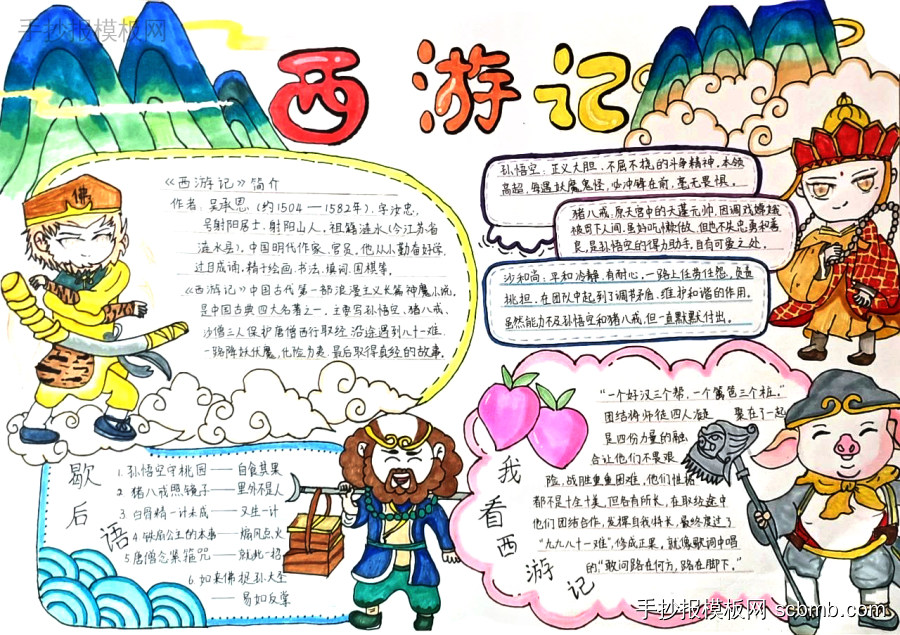 手抄报模板网
西游记
《西游记》简介
作者：吴承恩（约1504——1582年），字汝忠，
号射阳居士，射阳山人，祖籍涟水（今江苏省
涟水县），中国明代作家、官员。他从小勤奋好学，
过目成诵，精于绘画、书法、填词、围棋等。
《西游记》中国古代第一部浪漫主义长篇神魔小说，
是中国古典四大名著之一，主要写孙悟空、猪八戒、
沙僧三人保护唐僧西行取经，沿途遇到八十一难，
一路降妖伏魔，化险为夷，最后取得真经的故事。
孙悟空：正义大胆、不屈不挠的斗争精神，本领
高超，每遇妖魔鬼怪，必冲锋在前，毫无畏惧。
猪八戒，原天宫中的天蓬元帅，因调戏嫦娥
被贬下人间，虽好吃懒做，但也不失忠勇和善
良，是孙悟空的得力助手，自有可爱之处。
沙和尚：平和冷静，有耐心，一路上任劳任怨，负责
挑担，在团队中起到了调节矛盾、维护和谐的作用。
虽然能力不及孙悟空和猪八戒，但一直默默付出。
佛
歇后语
1. 孙悟空守桃园——自食其果
2. 猪八戒照镜子——里外不是人
3. 白骨精一计未成——又生一计
4. 铁扇公主的本事——煽风点火
5. 唐僧念紧箍咒——就此一招
6. 如来佛捉孙大圣
——易如反掌
我看西游记
“一个好汉三个帮，一个篱笆三个桩。”
团结将师徒四人凝聚在了一起
是四份力量的融
合让他们不畏艰
险，战胜重重困难，他们谁都
都不是十全十美，但各有所长，在取经途中
他们团结合作，发挥自我特长，最终度过了
“九九八十一难”，修成正果，就像歌词中唱
的“敢问路在何方，路在脚下。”
手抄报模板网 scbmb.com